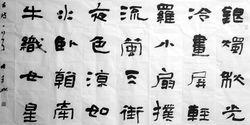 銀燭秋光
冷畫屏輕
羅小扇撲
流螢天街
夜色涼如
水卧看牽
牛織女星